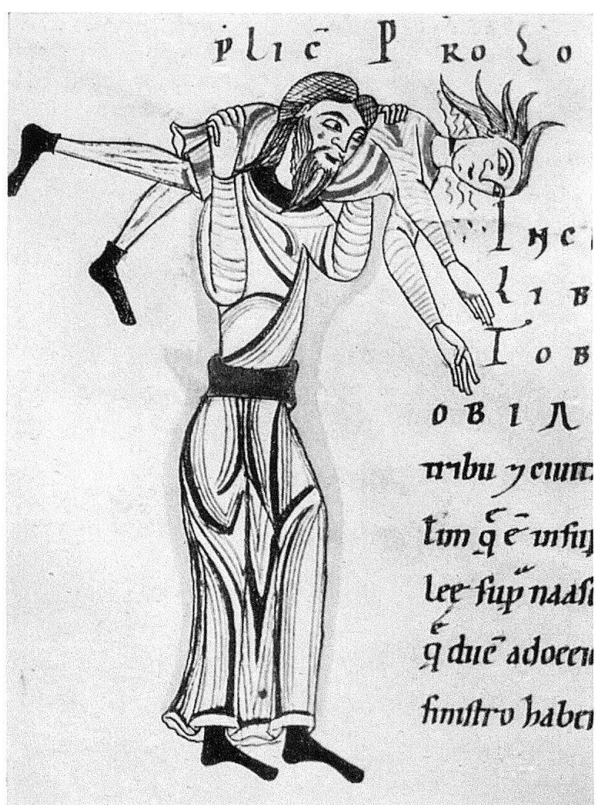 plic̄ P ROLO
INC
LIB
TOB
OBIA
tribu ⁊ ciuit
lim q̄ ē insup
leę sup naas
q̄ duc̄ adocci
sinistro habe